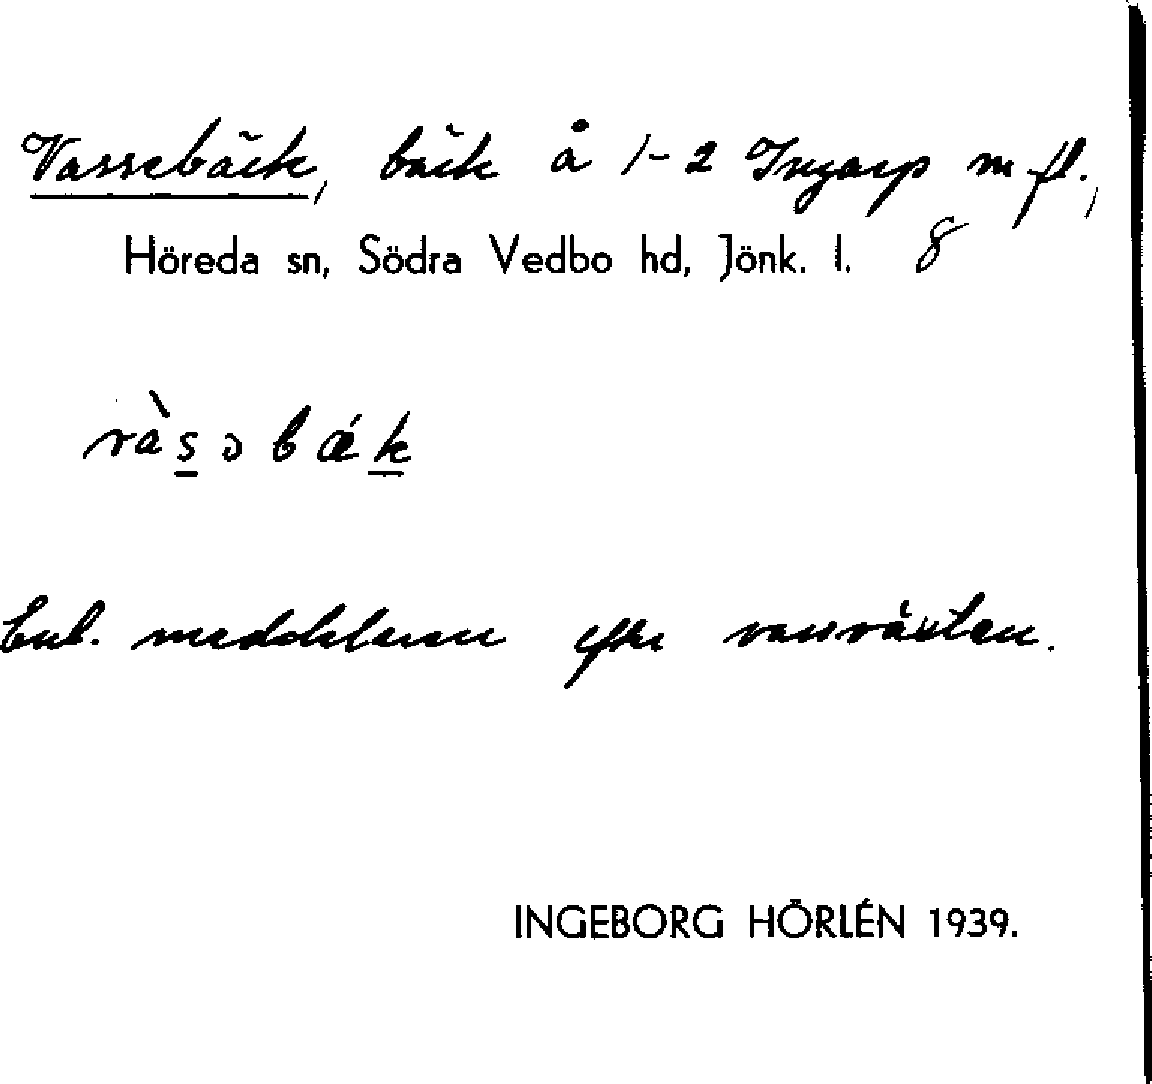 Vassebäck, bäck å 1-2 Ingarp m fl.,
Höreda sn, Södra Vedbo hd, Jönk. l. 8
vàsəbǽk
Enl. meddelaren efter vassväxten.
INGEBORG HÖRLÉN 1939.